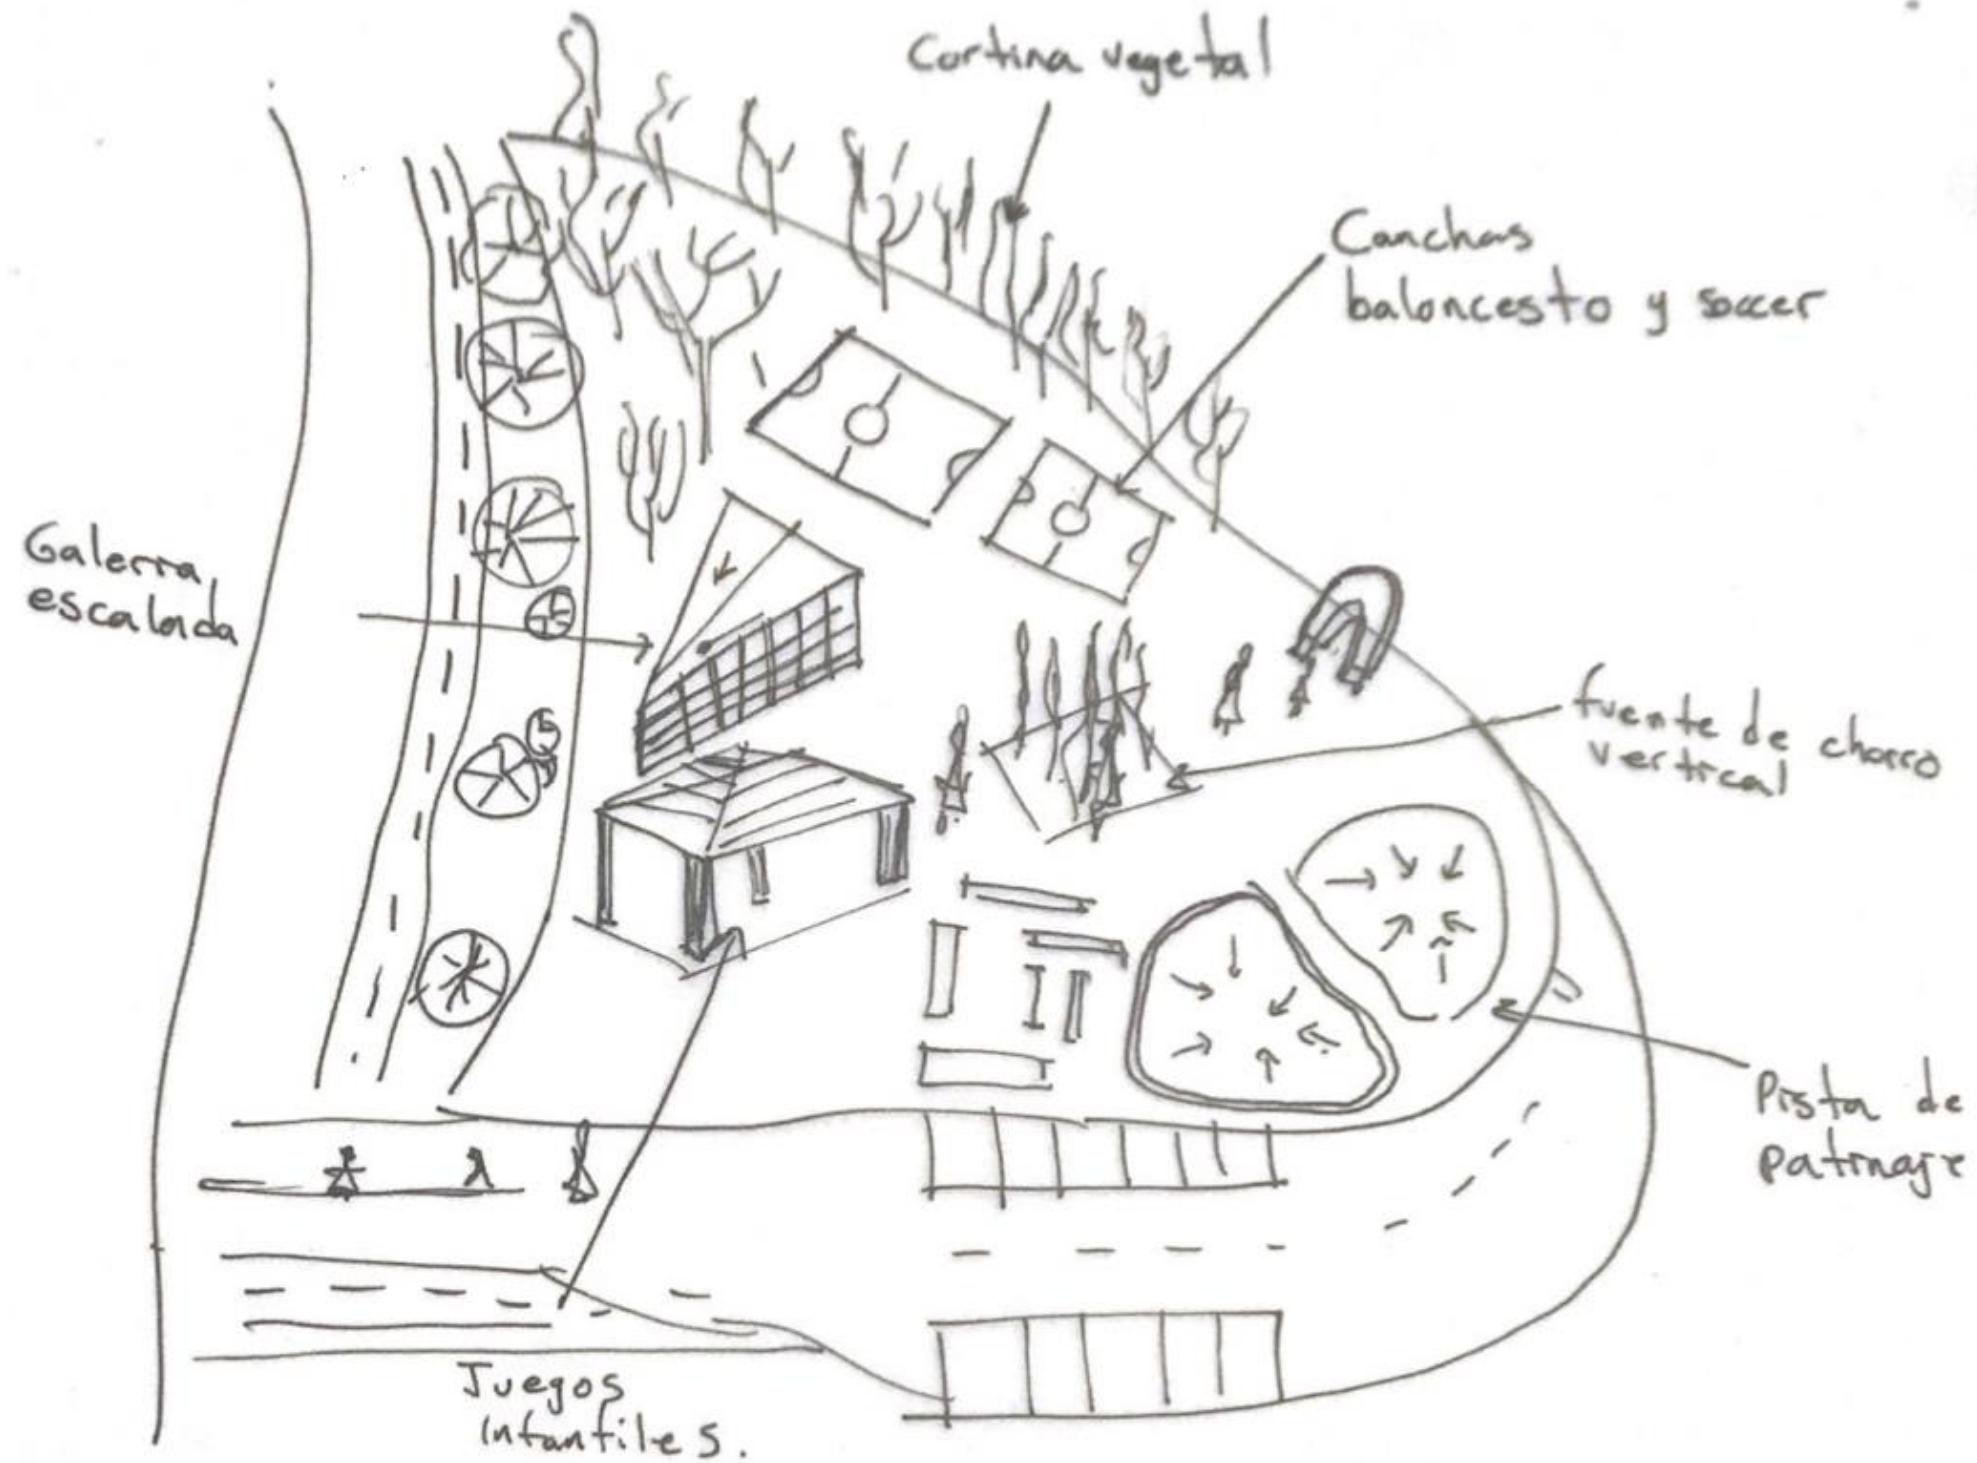 Cortina vegetal
Canchas
baloncesto y soccer
Galerra
escalada
fuente de chorro
vertical
Pista de
patinaje
Juegos
infantiles.